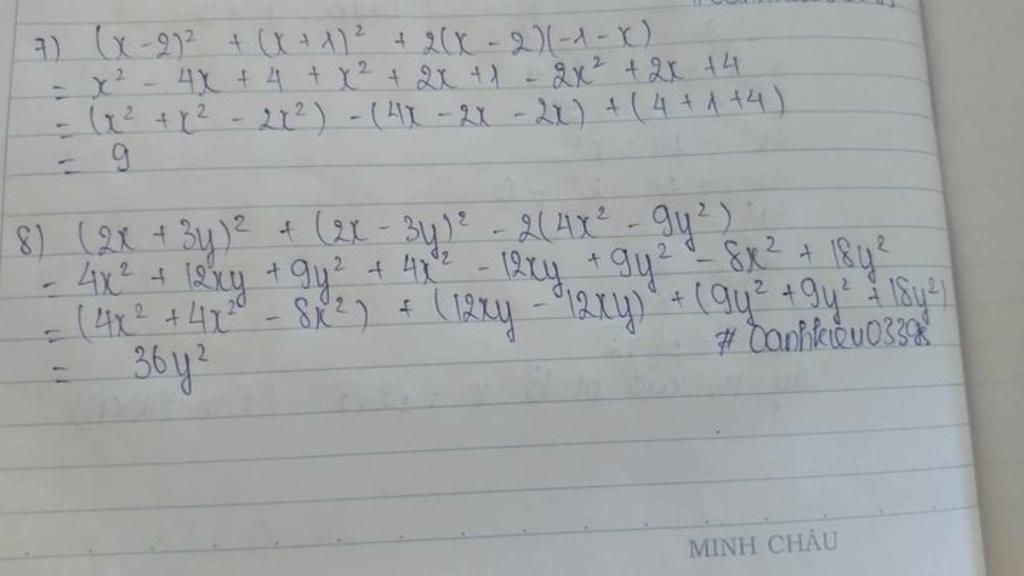 7) (x - 2)² + (x + 1)² + 2(x - 2)(-1 - x)
= x² - 4x + 4 + x² + 2x + 1 - 2x² + 2x + 4
= (x² + x² - 2x²) - (4x - 2x - 2x) + (4 + 1 + 4)
= 9
8) (2x + 3y)² + (2x - 3y)² - 2(4x² - 9y²)
= 4x² + 12xy + 9y² + 4x² - 12xy + 9y² - 8x² + 18y²
= (4x² + 4x² - 8x²) + (12xy - 12xy) + (9y² + 9y² + 18y²)
= 36y²
# Oanhkieu0398
MINH CHÂU